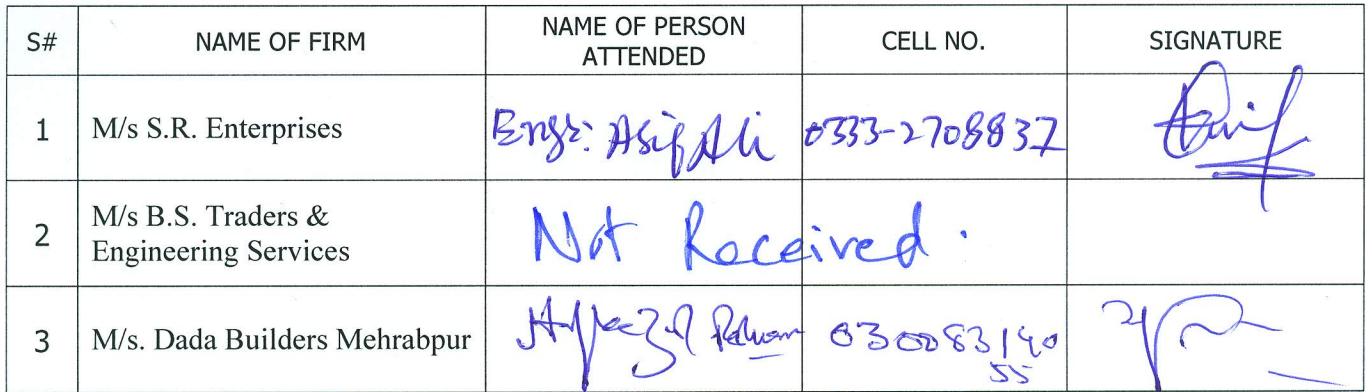 S# NAME OF FIRM NAME OF PERSON ATTENDED CELL NO. SIGNATURE
1 M/s S.R. Enterprises Engr: Asif Ali 0333-2708837
2 M/s B.S. Traders & Engineering Services Not Received.
3 M/s. Dada Builders Mehrabpur